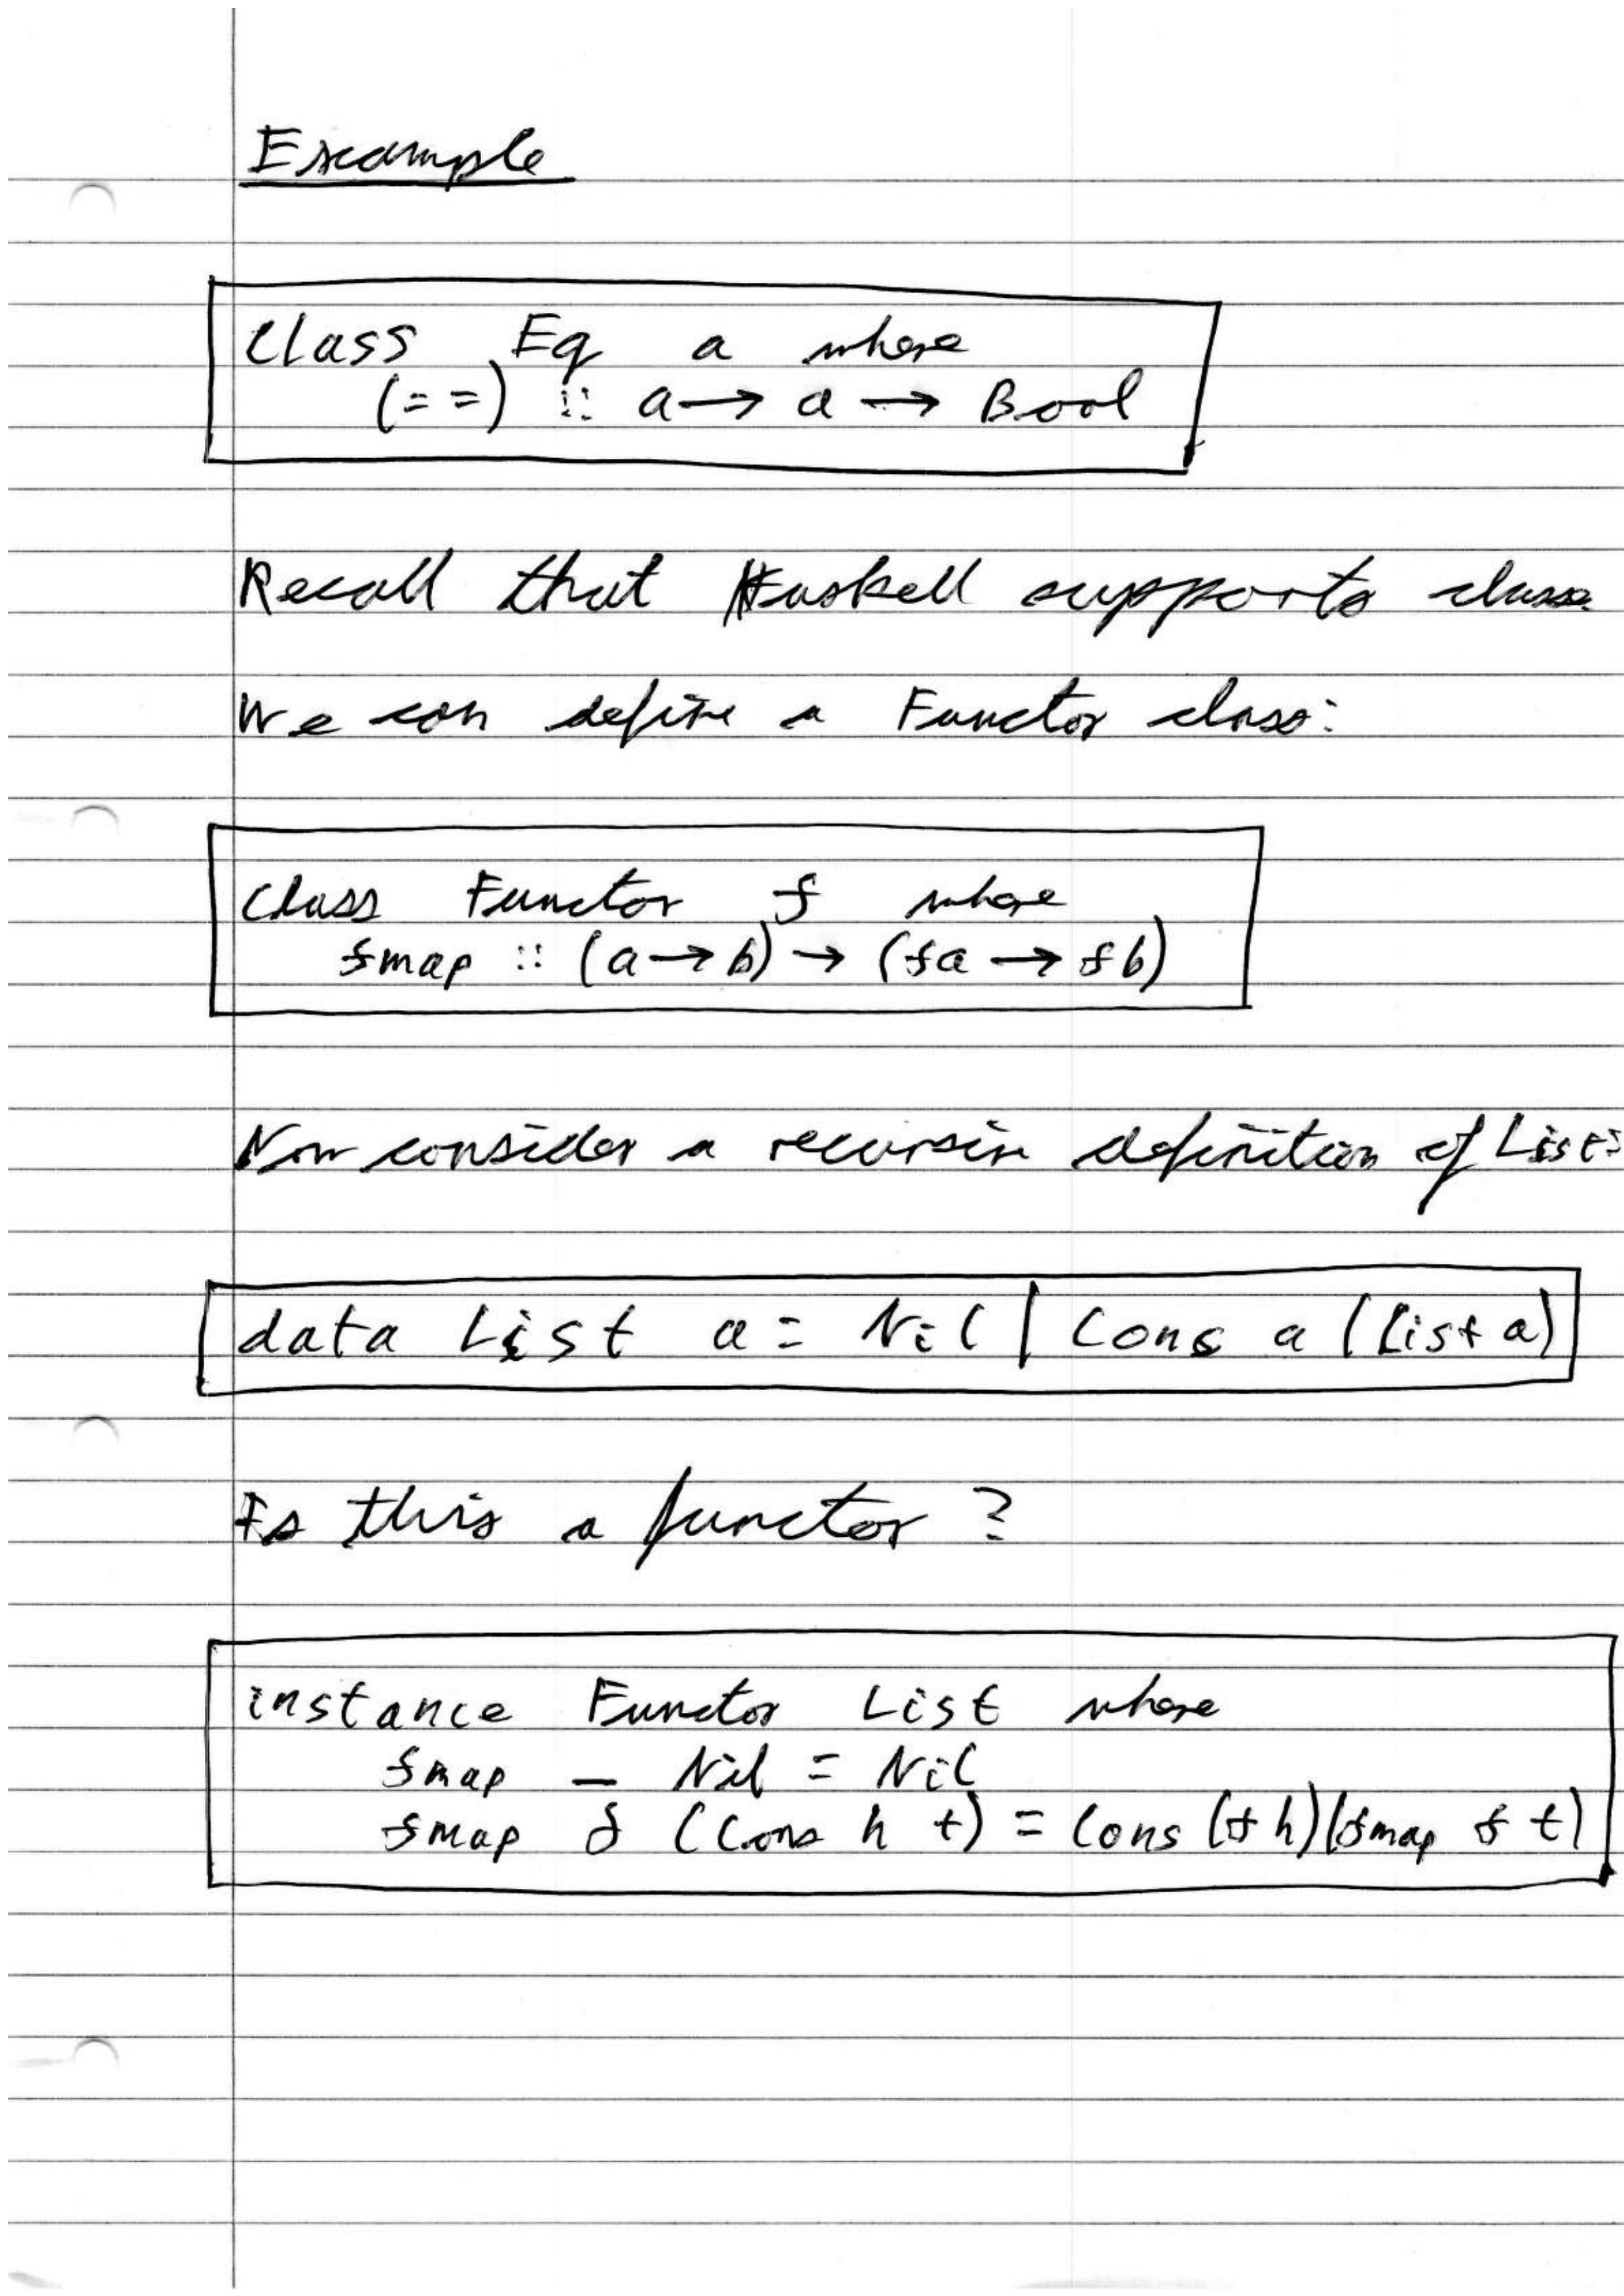 Example
class Eq a where
(==) :: a → a → Bool
Recall that Haskell supports classe
We can define a Functor class:
class Functor f where
fmap :: (a → b) → (fa → fb)
Now consider a recursive definition of List:
data List a = Nil | Cons a (List a)
Is this a functor?
instance Functor List where
fmap _ Nil = Nil
fmap f (Cons h t) = Cons (f h) (fmap f t)